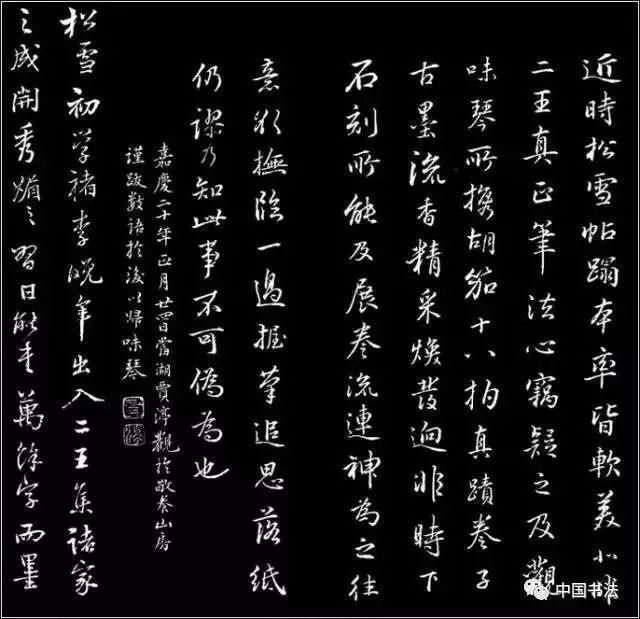 近時松雪帖蹋本率皆軟美非
二王真正筆法心竊疑之及觀
味琴所攜胡笳十八拍真蹟卷子
古墨流香精采煥發迥非時下
石刻所能及展卷流連神為之往
意欲撫臨一過握筆追思落紙
仍謬乃知此事不可偽為也
嘉慶二十年正月廿四日當湖賈淳觀於敬養山房
謹跋數語於後以歸味琴
松雪初學褚李晚年出入二王集諸家
之成開秀媚之習日能書萬餘字而墨
中国书法